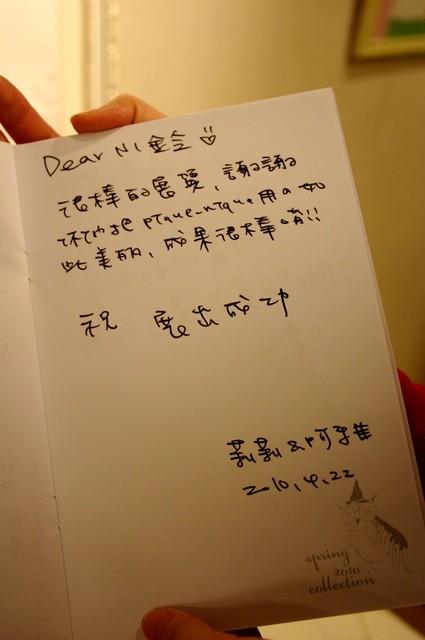 Dear NI 金全
很棒的展覽，謝謝
你們把 pique-nique 用的如
此美的，成果很棒唷!!
祝 展出成功
莉莉 & 阿雀
2010.4.22
spring
2010
collection